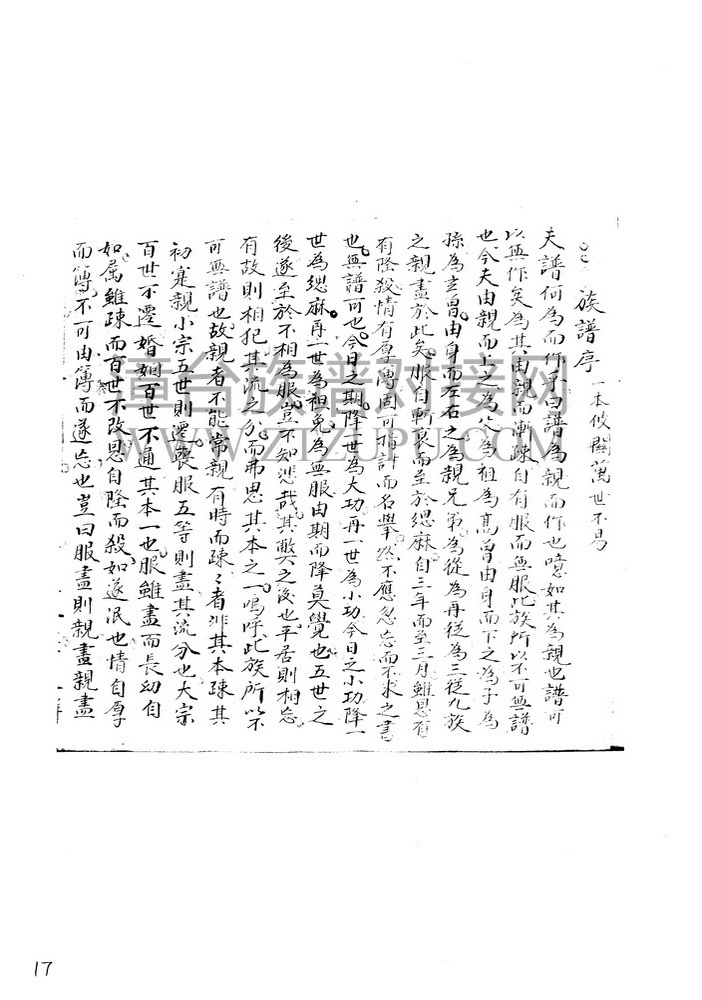 族譜序 一本攸關萬世不易
夫譜何為而作乎曰譜為親而作也噫如其為親也譜可
以無作矣為其由親而漸疎自有服而無服此族所以不可無譜
也今夫由親而上之為父為祖為高曾由身而下之為子為
孫為玄曾由身而左右之為親兄弟為從為再從為三從九族
之親盡於此矣服自斬衰而至於緦麻自三年而至三月雖恩有
有隆殺情有厚薄固可指計而名舉然不應忽忘而不求之書
也無譜可也今日之期降世為大功再一世為小功今日之小功降一
世為緦麻再一世為袒免為無服由期而降莫覺也五世之
後遂至於不相為服豈不知悲哉其弊之後也平居則相忘
有故則相犯其流之分而弗思其本之一嗚呼此族所以不
可無譜也故親者不能常親有時而疎疎者非其本疎其
初寔親小宗五世則遷喪服五等則盡其流分也大宗
百世不遷婚姻百世不通其本一也服雖盡而長幼自
如屬雖疎而百世不改恩自隆而殺如遂泯也情自厚
而薄不可由薄而遂忘也豈曰服盡則親盡親盡
譚台族譜对接网
WWW.ZTZUPU.COM
17